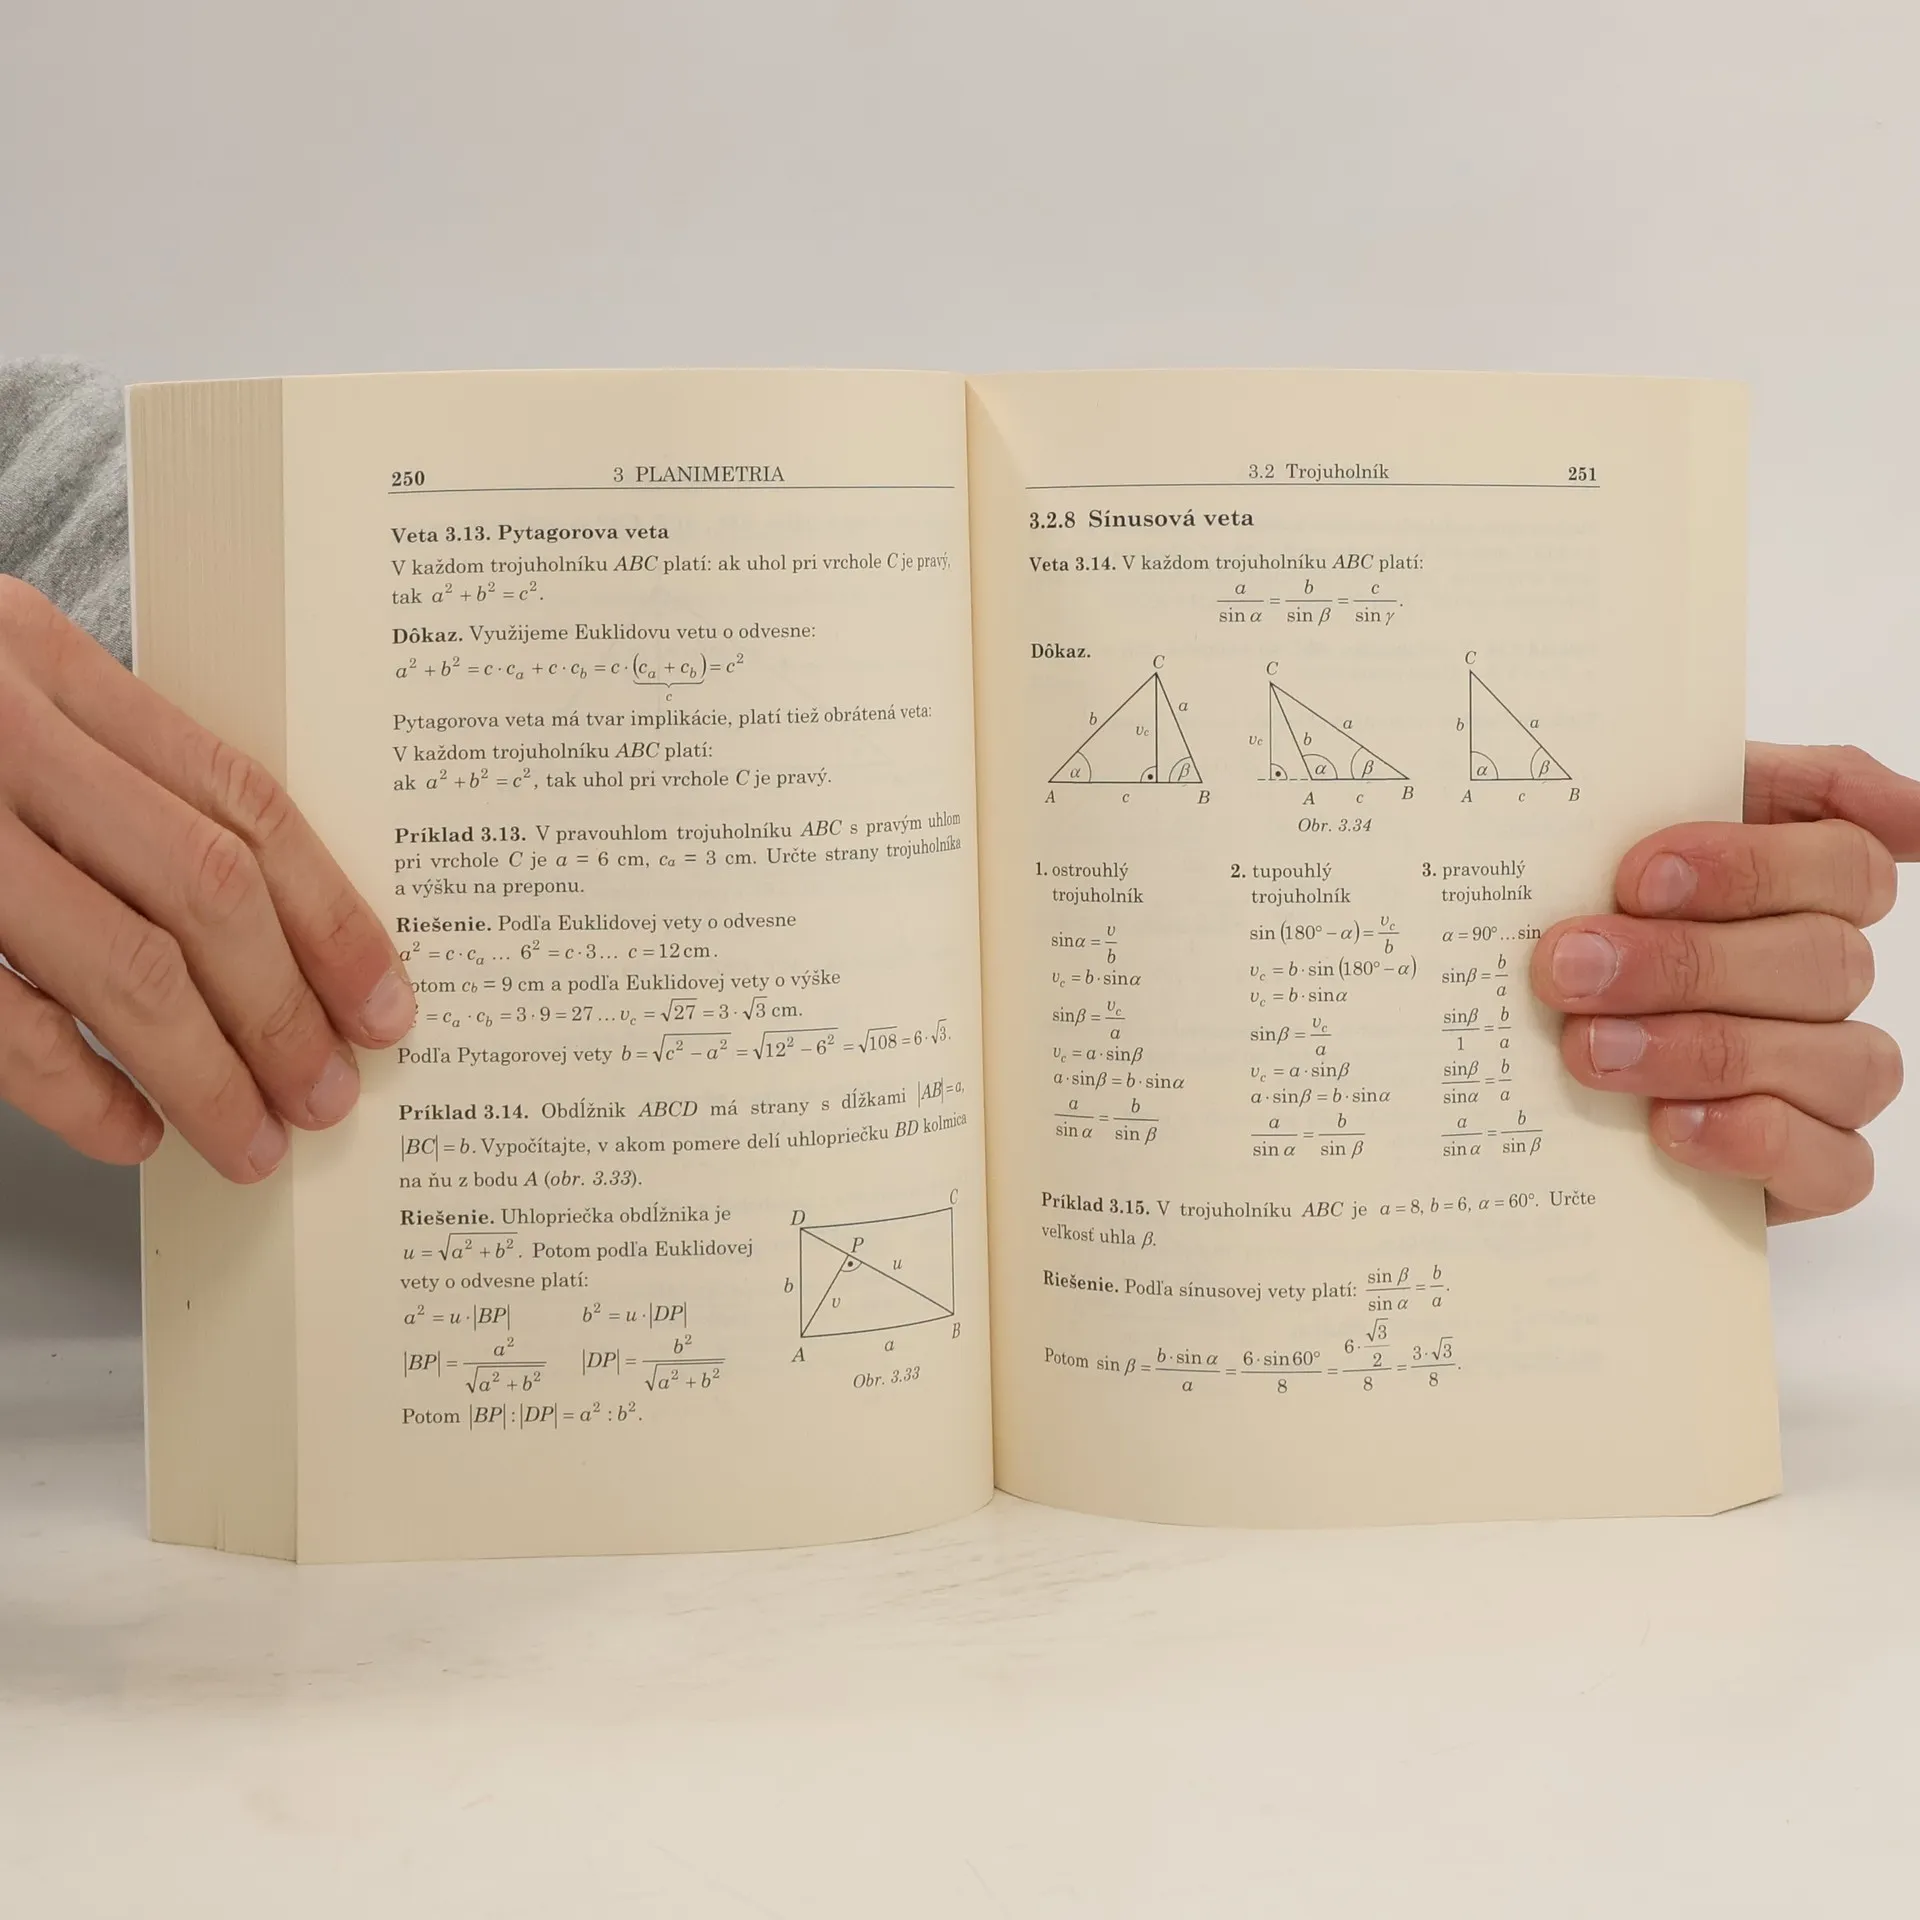 250 3 PLANIMETRIA
Veta 3.13. Pytagorova veta
V každom trojuholníku ABC platí: ak uhol pri vrchole C je pravý,
tak a² + b² = c².
Dôkaz. Využijeme Euklidovu vetu o odvesne:
a² + b² = c · cₐ + c · c_b = c · (cₐ + c_b) = c²
c
Pytagorova veta má tvar implikácie, platí tiež obrátená veta:
V každom trojuholníku ABC platí:
ak a² + b² = c², tak uhol pri vrchole C je pravý.
Príklad 3.13. V pravouhlom trojuholníku ABC s pravým uhlom
pri vrchole C je a = 6 cm, cₐ = 3 cm. Určte strany trojuholníka
a výšku na preponu.
Riešenie. Podľa Euklidovej vety o odvesne
a² = c · cₐ ... 6² = c · 3... c = 12 cm.
otom c_b = 9 cm a podľa Euklidovej vety o výške
= cₐ · c_b = 3 · 9 = 27 ... v_c = √27 = 3 · √3 cm.
Podľa Pytagorovej vety b = √(c² − a²) = √(12² − 6²) = √108 = 6 · √3.
Príklad 3.14. Obdĺžnik ABCD má strany s dĺžkami |AB| = a,
|BC| = b. Vypočítajte, v akom pomere delí uhlopriečku BD kolmica
na ňu z bodu A (obr. 3.33).
Riešenie. Uhlopriečka obdĺžnika je
u = √(a² + b²). Potom podľa Euklidovej
vety o odvesne platí:
a² = u · |BP| b² = u · |DP|
|BP| = a²/√(a² + b²) |DP| = b²/√(a² + b²)
Potom |BP| : |DP| = a² : b².
D C
P
u
b
v
A a B
Obr. 3.33
3.2 Trojuholník 251
3.2.8 Sínusová veta
Veta 3.14. V každom trojuholníku ABC platí:
a/sin α = b/sin β = c/sin γ.
Dôkaz.
C
b a
v_c
α β
A c B
C
v_c b a
α β
A c B
C
b a
α β
A c B
Obr. 3.34
1. ostrouhlý
trojuholník
sinα = v/b
v_c = b · sinα
sinβ = v_c/a
v_c = a · sinβ
a · sinβ = b · sinα
a/sin α = b/sin β
2. tupouhlý
trojuholník
sin (180° − α) = v_c/b
v_c = b · sin (180° − α)
v_c = b · sinα
sinβ = v_c/a
v_c = a · sinβ
a · sinβ = b · sinα
a/sin α = b/sin β
3. pravouhlý
trojuholník
α = 90° ... sin
sinβ = b/a
sinβ/1 = b/a
sinβ/sinα = b/a
a/sin α = b/sin β
Príklad 3.15. V trojuholníku ABC je a = 8, b = 6, α = 60°. Určte
veľkosť uhla β.
Riešenie. Podľa sínusovej vety platí: sin β/sin α = b/a.
Potom sin β = b · sin α/a = 6 · sin 60°/8 = 6 · √3/2/8 = 3 · √3/8.